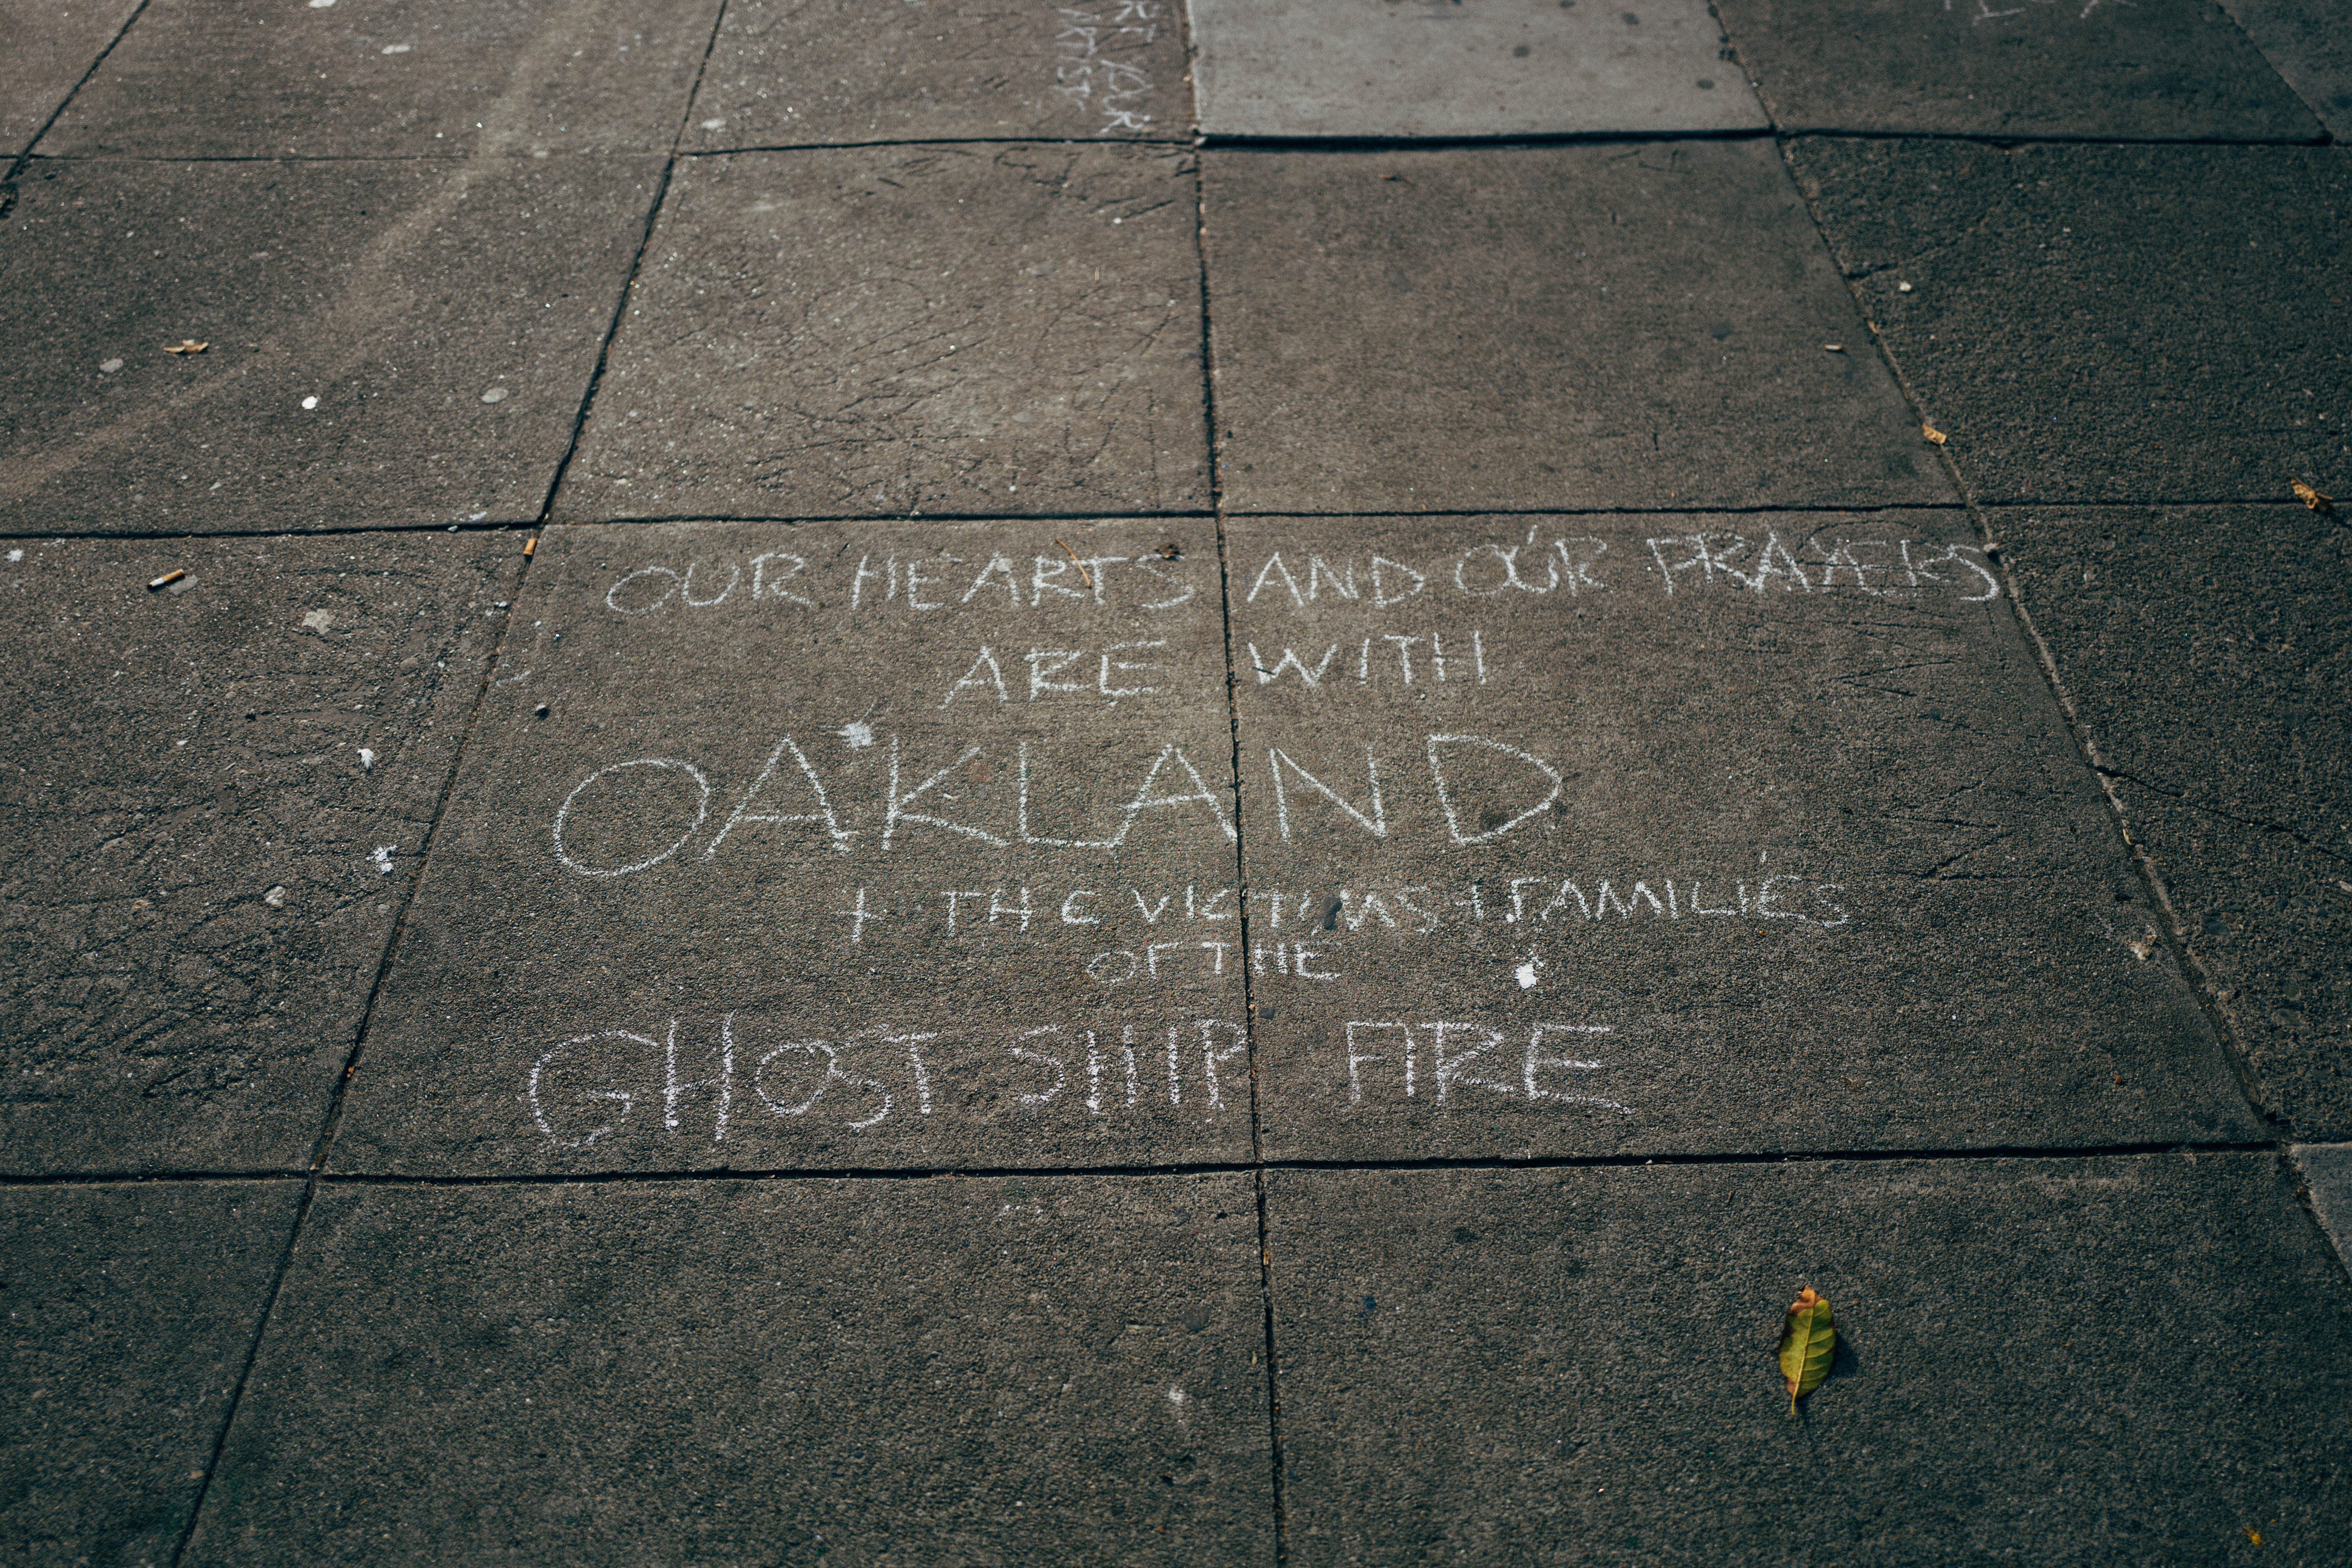 YOUR
ARTIST
OUR HEARTS AND OUR PRAYERS
ARE WITH
OAKLAND
+ THE VICTIMS + FAMILIES
OF THE
GHOST SHIP FIRE